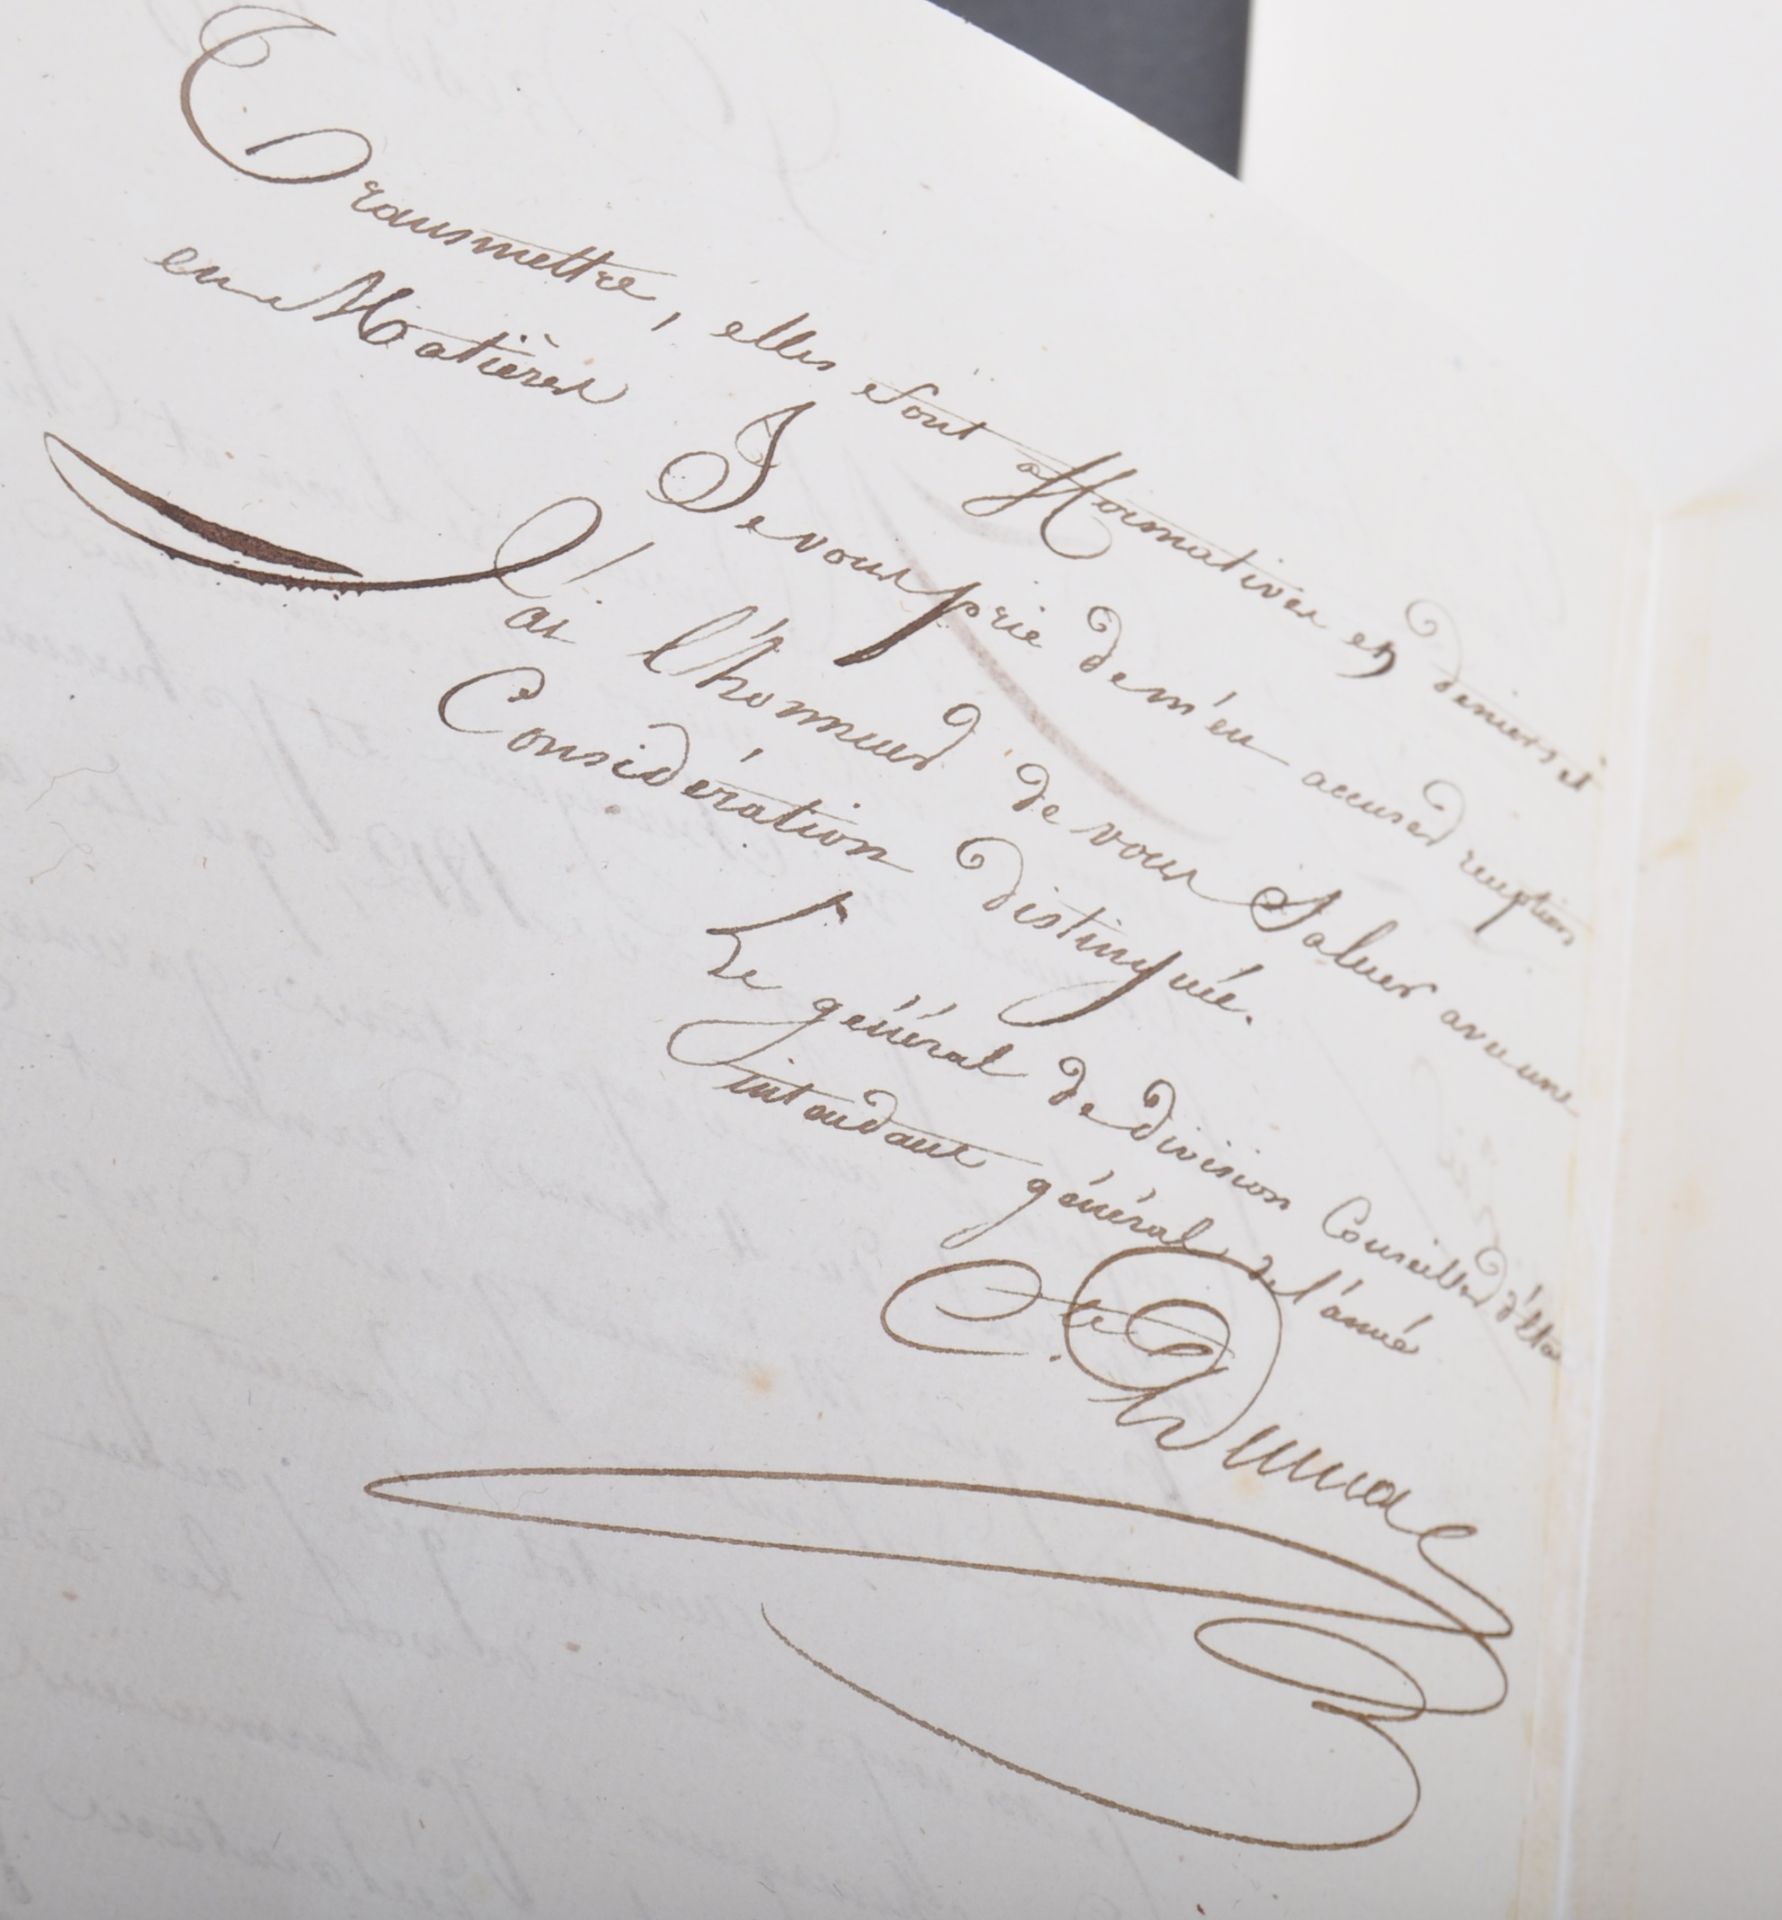 Transmettre, elles sont affirmatives en deniers et
en Matières
Je vous prie de m'en accuser réception
J'ai l'honneur de vous Saluer avec une
Considération distinguée.
Le général de division Conseiller d'état
intendant général de l'armée
Cte Dumas